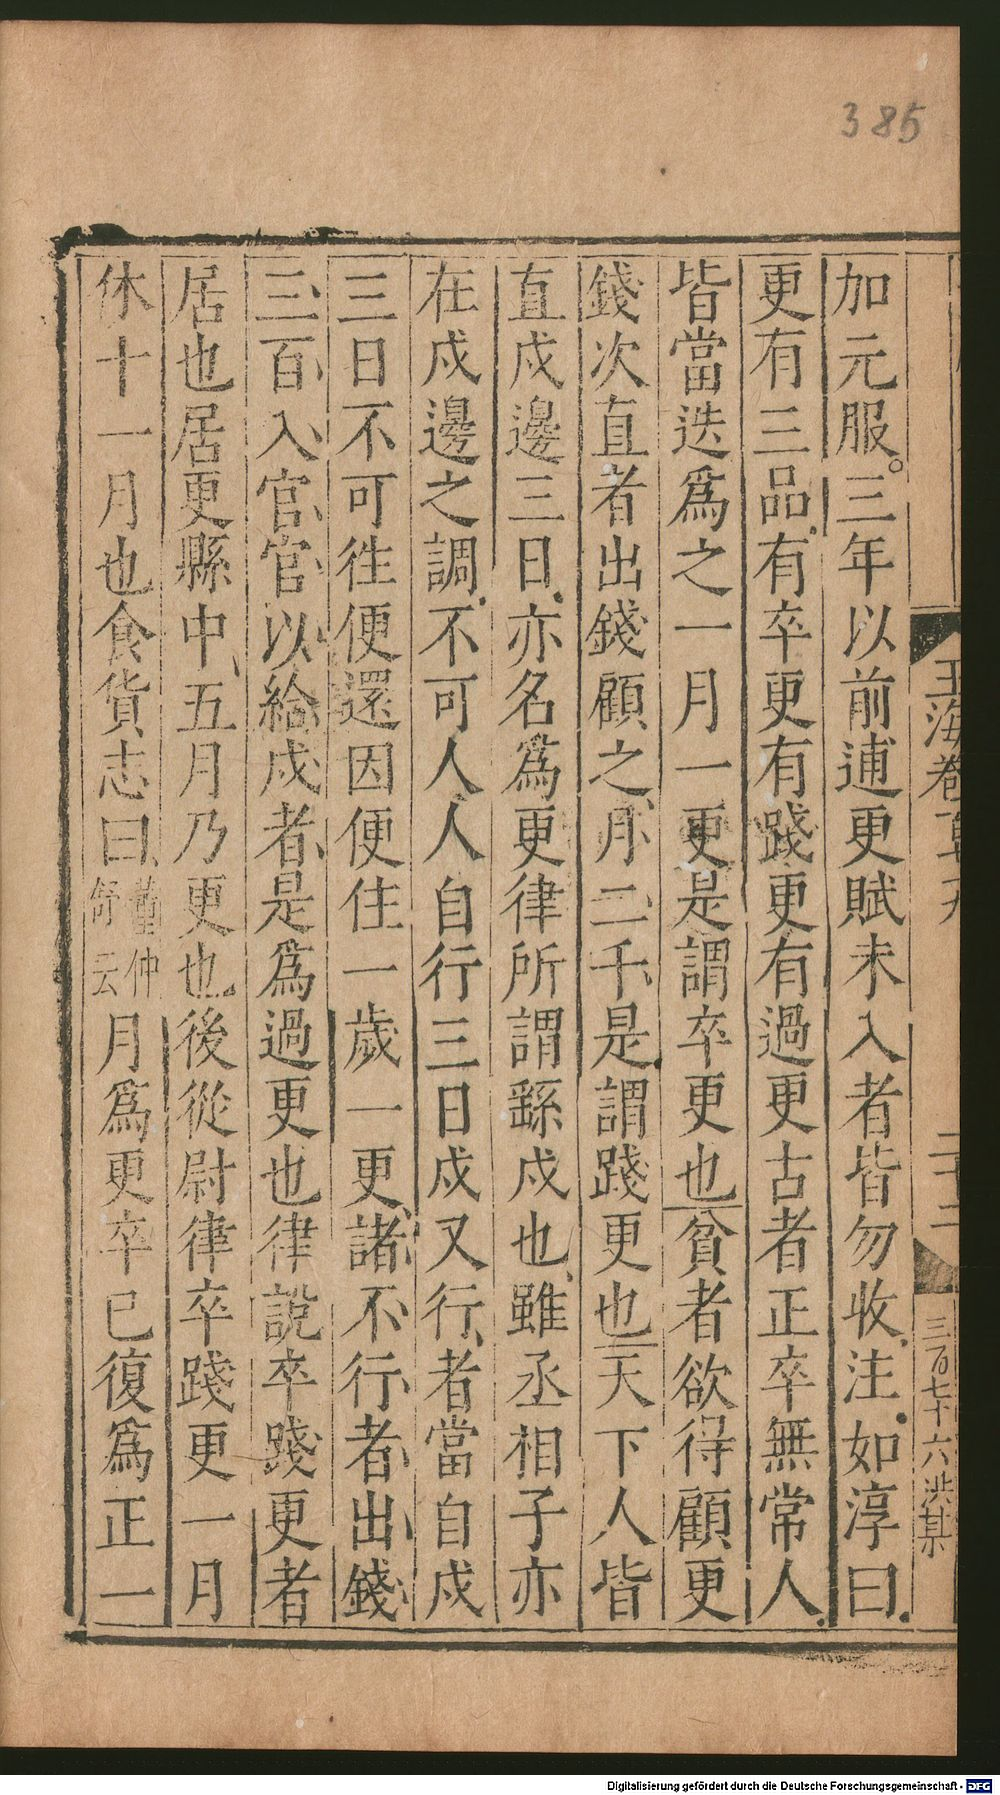 385
玉海卷
二十二
三百七十六
加元服。三年以前逋更賦未入者皆勿收注如淳曰
更有三品有卒更有踐更有過更古者正卒無常人
皆當迭爲之一月一更是謂卒更也貧者欲得顧更
錢次直者出錢顧之月二千是謂踐更也天下人皆
直戍邊三日亦名爲更律所謂繇戍也雖丞相子亦
在戍邊之調不可人人自行三日戍又行者當自戍
三日不可徃便還因便住一歲一更諸不行者出錢
三百入官官以給戍者是爲過更也律說卒踐更者
居也居更縣中五月乃更也後從尉律卒踐更一月
休十一月也食貨志曰董仲舒云月爲更卒已復爲正一
Digitalisierung gefördert durch die Deutsche Forschungsgemeinschaft - DFG